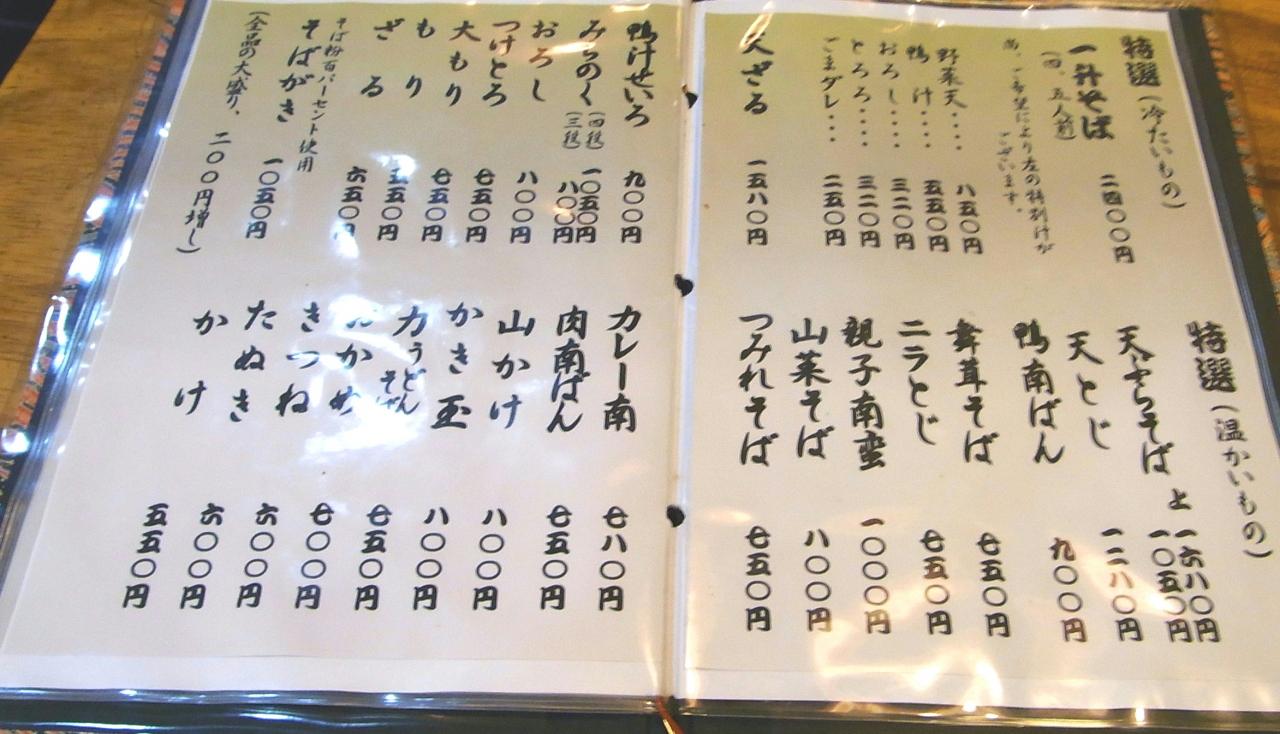 特選(冷たいもの)
一升そば 二四〇〇円
(四、五人前)
尚、ご希望により左の特別汁が
ございます。
野菜天・・・・ 八五〇円
鴨 汁・・・・ 五五〇円
おろし・・・・ 三二〇円
とろろ・・・・ 三二〇円
ごまダレ・・・・ 二五〇円
天ざる 一五八〇円
特選(温かいもの)
天ぷらそば 上 一六八〇円
一〇五〇円
天とじ 一二八〇円
鴨南ばん 九〇〇円
舞茸そば 七五〇円
ニラとじ 七五〇円
親子南蛮 一〇〇〇円
山菜そば 八〇〇円
つみれそば 七五〇円
鴨汁せいろ 九〇〇円
みちのく (四段) 一〇五〇円
(三段) 八〇〇円
おろし 八〇〇円
つけとろ 七五〇円
大もり 七五〇円
もり 五五〇円
ざる 六五〇円
そば粉百パーセント使用
そばがき 一〇五〇円
(全品の大盛り、二〇〇円増し)
カレー南 七八〇円
肉南ばん 七五〇円
山かけ 八〇〇円
かき玉 八〇〇円
力うどん そば 七五〇円
おかめ 七〇〇円
きつね 六〇〇円
たぬき 六〇〇円
かけ 五五〇円